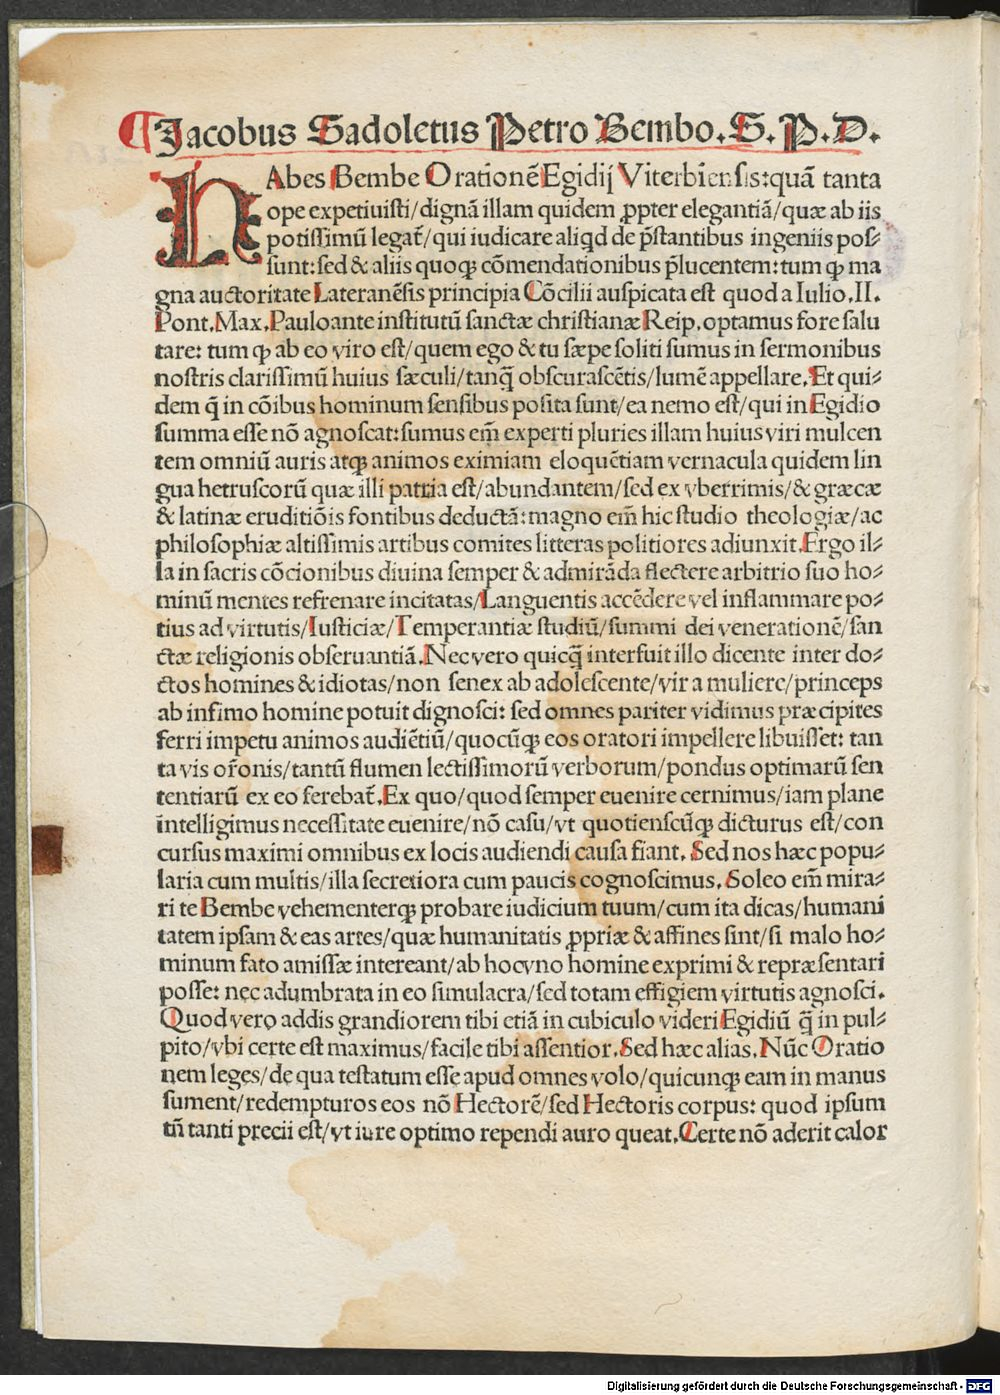 ¶Jacobus Sadoletus Petro Bembo. S. P. D.
HAbes Bembe Orationē Egidij Viterbiensis: quā tanta
ope expetiuisti/dignā illam quidem ꝓpter elegantiā/quæ ab iis
potissimū legat̄/qui iudicare aliqd de p̄stantibus ingeniis pos⸗
sunt: sed & aliis quoqꝫ cōmendationibus p̄lucentem: tum ꝙ ma
gna auctoritate Lateranēsis principia Cōcilii auspicata est quod a Iulio. II.
Pont. Max. Pauloante institutū sanctæ christianæ Reip. optamus fore salu
tare: tum ꝙ ab eo viro est/quem ego & tu sæpe soliti sumus in sermonibus
nostris clarissimū huius sæculi/tanq̄ obscurascētis/lumē appellare. Et qui⸗
dem q̄ in cōibus hominum sensibus posita sunt/ea nemo est/qui in Egidio
summa esse nō agnoscat: sumus em̄ experti pluries illam huius viri mulcen
tem omniū auris atqꝫ animos eximiam eloquētiam vernacula quidem lin
gua hetruscorū quæ illi patria est/abundantem/sed ex vberrimis/& græcæ
& latinæ eruditiōis fontibus deductā: magno em̄ hic studio theologiæ/ac
philosophiæ altissimis artibus comites litteras politiores adiunxit. Ergo il⸗
la in sacris cōcionibus diuina semper & admirāda flectere arbitrio suo ho⸗
minū mentes refrenare incitatas/Languentis accēdere vel inflammare po⸗
tius ad virtutis/Iusticiæ/Temperantiæ studiū/summi dei venerationē/san
ctæ religionis obseruantiā. Nec vero quicq̄ interfuit illo dicente inter do⸗
ctos homines & idiotas/non senex ab adolescente/vir a muliere/princeps
ab infimo homine potuit dignosci: sed omnes pariter vidimus præcipites
ferri impetu animos audiētiū/quocūqꝫ eos oratori impellere libuisset: tan
ta vis or̄onis/tantū flumen lectissimorū verborum/pondus optimarū sen
tentiarū ex eo ferebat̄. Ex quo/quod semper euenire cernimus/iam plane
intelligimus necessitate euenire/nō casu/vt quotienscūqꝫ dicturus est/con
cursus maximi omnibus ex locis audiendi causa fiant. Sed nos hæc popu⸗
laria cum multis/illa secretiora cum paucis cognoscimus. Soleo em̄ mira⸗
ri te Bembe vehementerqꝫ probare iudicium tuum/cum ita dicas/humani
tatem ipsam & eas artes/quæ humanitatis ꝓpriæ & affines sint/si malo ho⸗
minum fato amissæ intereant/ab hoc vno homine exprimi & repræsentari
posse: nec adumbrata in eo simulacra/sed totam effigiem virtutis agnosci.
Quod vero addis grandiorem tibi etiā in cubiculo videri Egidiū q̄ in pul⸗
pito/vbi certe est maximus/facile tibi assentior. Sed hæc alias. Nūc Oratio
nem leges/de qua testatum esse apud omnes volo/quicunqꝫ eam in manus
sument/redempturos eos nō Hectorē/sed Hectoris corpus: quod ipsum
tn̄ tanti precii est/vt iure optimo rependi auro queat. Certe nō aderit calor
Digitalisierung gefördert durch die Deutsche Forschungsgemeinschaft - DFG